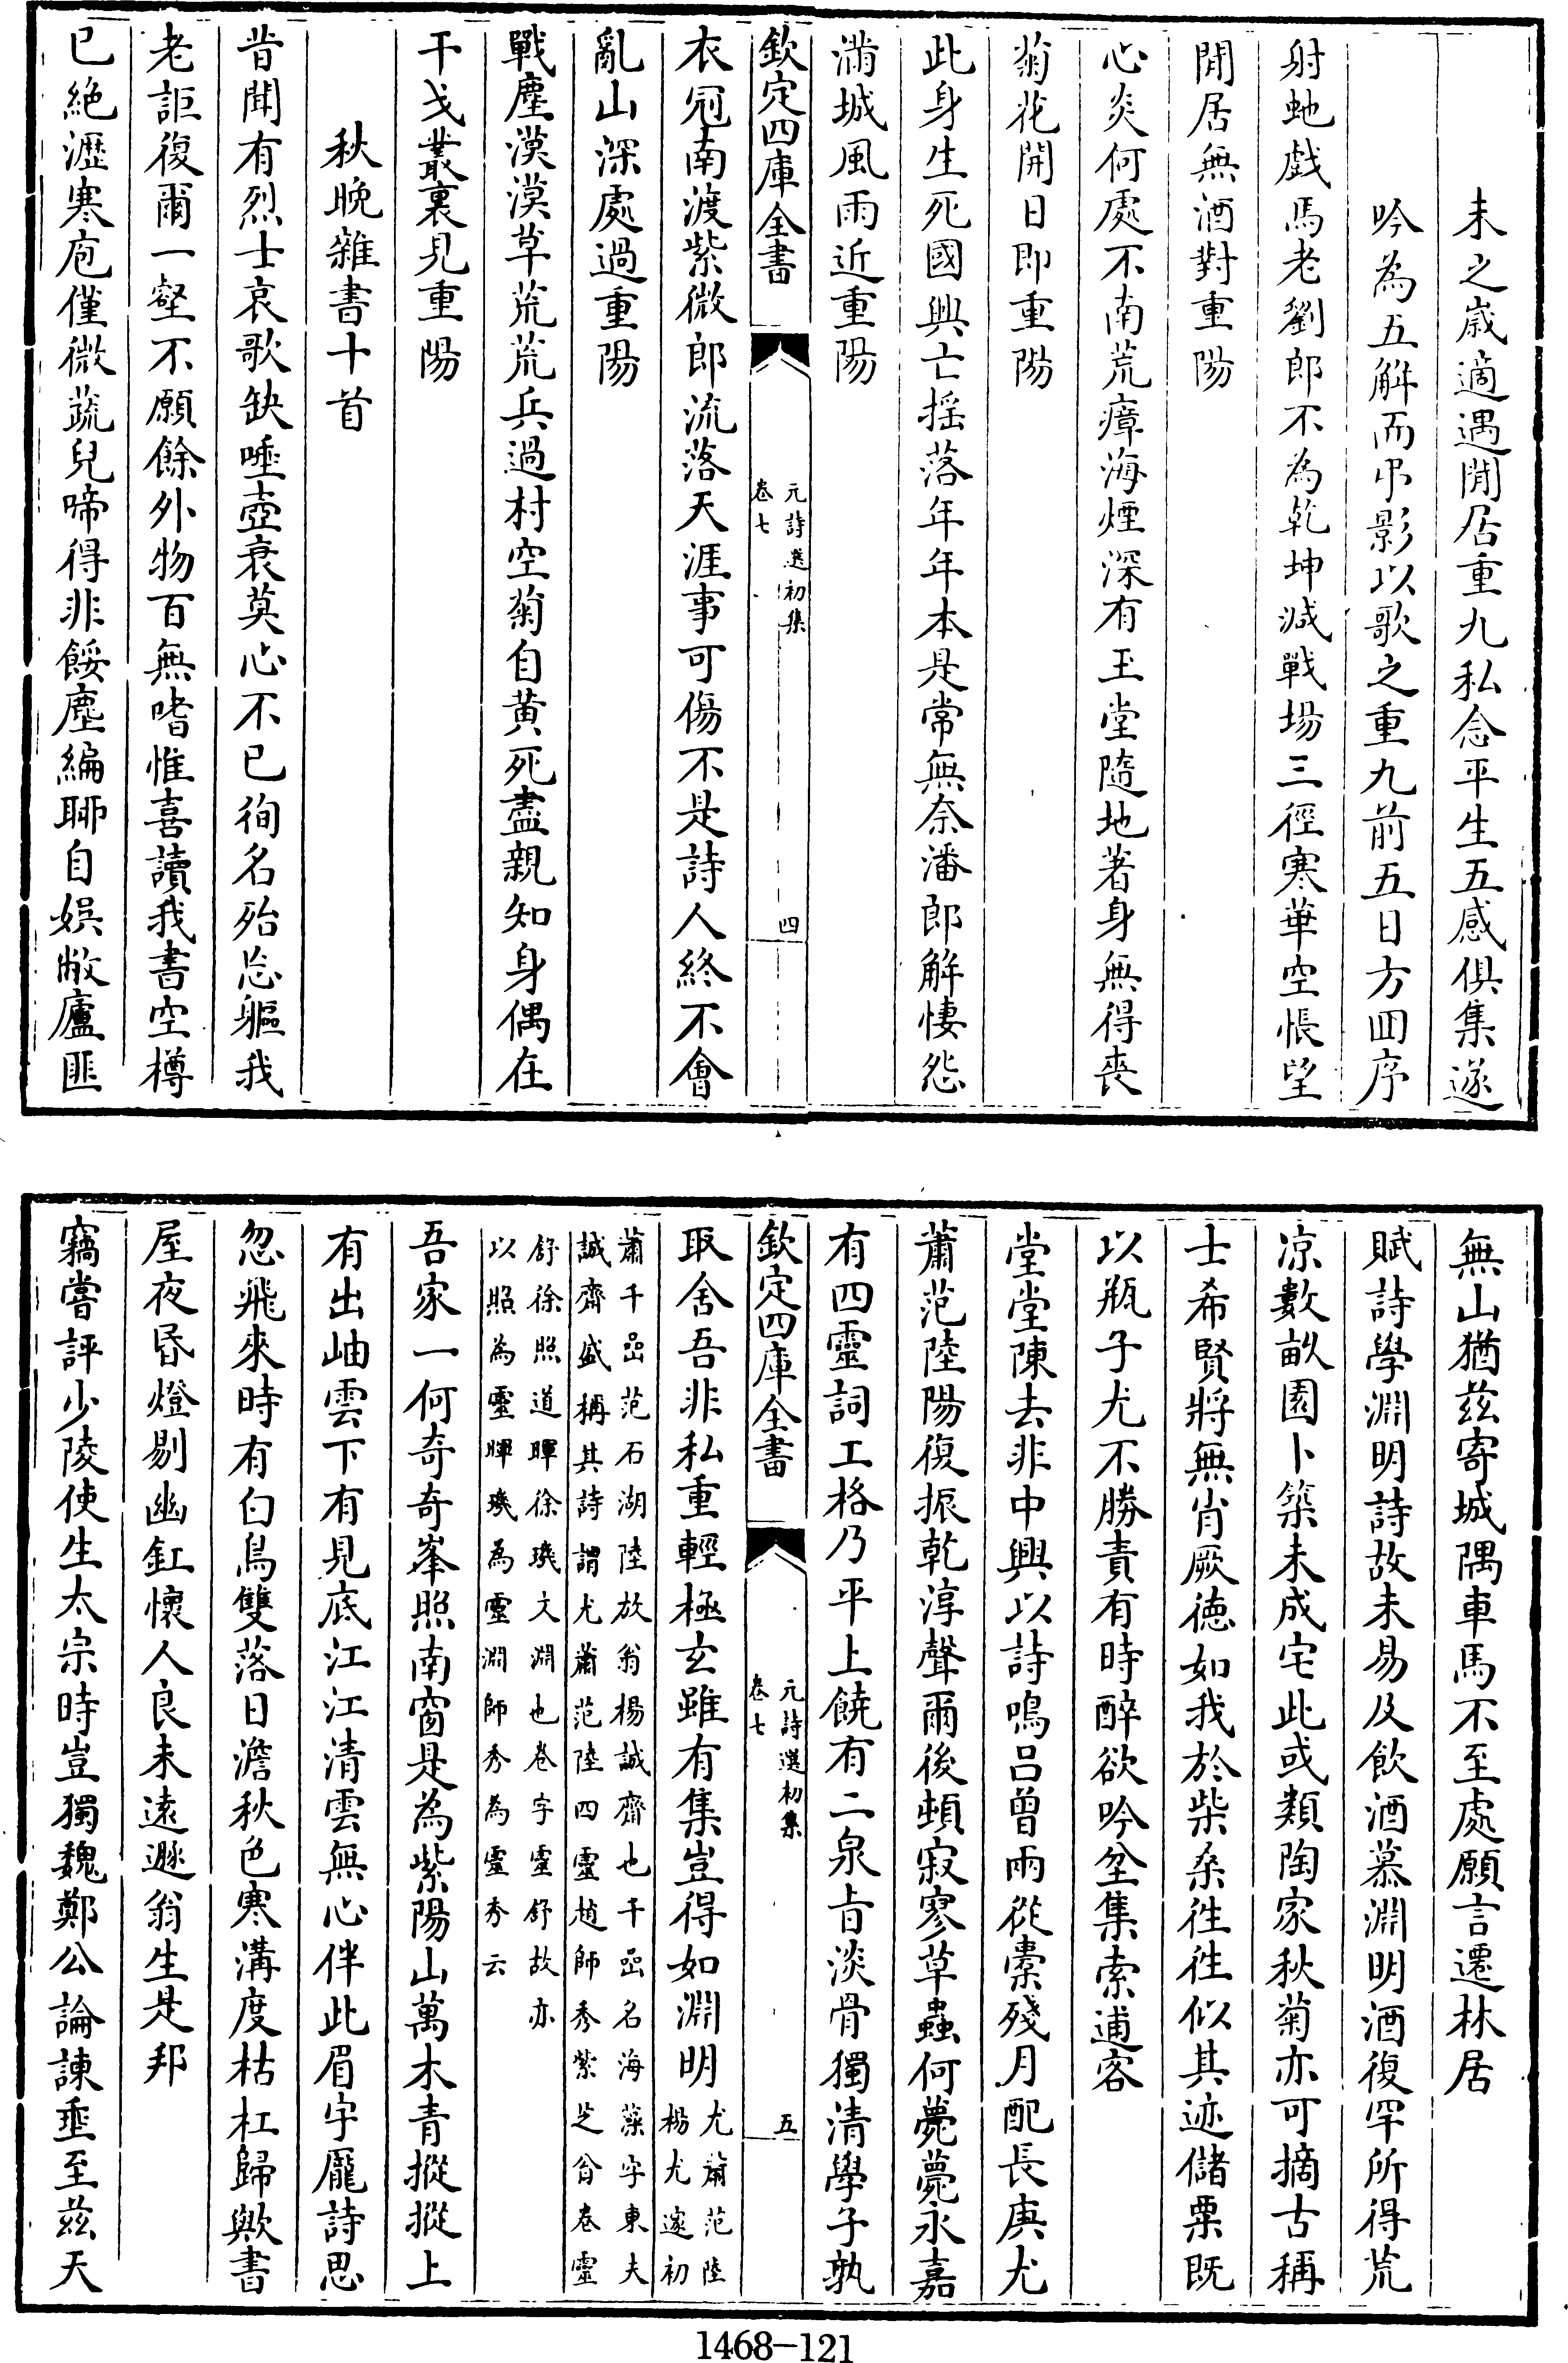 未之嵗適遇閒居重九私念平生五感俱集遂
吟為五解而弔影以歌之重九前五日方回序
射虵戯馬老劉郎不為乾坤減戰場三徑寒華空悵望
閒居無酒對重陽
心炎何處不南荒瘴海煙深有玉堂隨地著身無得喪
菊花開日即重陽
此身生死國興亡揺落年年本是常無奈潘郎解悽怨
滿城風雨近重陽
欽定四庫全書
元詩選初集
卷七
四
衣冠南渡紫微郎流落天涯事可傷不是詩人終不會
亂山深處過重陽
戰塵漠漠草荒荒兵過村空菊自黃死盡親知身偶在
干戈叢裏見重陽
秋晚雜書十首
昔聞有烈士哀歌缺唾壺衰莫心不已徇名殆忘軀我
老詎復爾一壑不願餘外物百無嗜惟喜讀我書空樽
已絶瀝寒庖僅微蔬兒啼得非餒塵編聊自娯敝廬匪
無山猶兹寄城隅車馬不至處願言遷林居
賦詩學淵明詩故未易及飲酒慕淵明酒復罕所得荒
凉數畝園卜築未成宅此或類陶家秋菊亦可摘古稱
士希賢將無肖厥徳如我於柴桑徃徃似其迹儲粟既
以瓶子尤不勝責有時醉欲吟坌集索逋客
堂堂陳去非中興以詩鳴呂曾兩從橐殘月配長庚尤
蕭范陸陽復振乾淳聲爾後頓寂寥草蟲何薨薨永嘉
有四靈詞工格乃平上饒有二泉㫖淡骨獨清學子孰
欽定四庫全書
元詩選初集
卷七
五
取舍吾非私重輕極玄雖有集豈得如淵明
尤蕭范陸
楊尤遂初
蕭千巖范石湖陸放翁楊誠齋也千巖名海藻字東夫
誠齋盛稱其詩謂尤蕭范陸四靈趙師秀紫芝翁卷靈
舒徐照道暉徐璣文淵也卷字靈舒故亦
以照為靈暉璣為靈淵師秀為靈秀云
吾家一何奇奇峯照南窗是為紫陽山萬木青摐摐上
有出岫雲下有見底江江清雲無心伴此眉宇厖詩思
忽飛來時有白鳥雙落日澹秋色寒溝度枯杠歸歟書
屋夜昏燈剔幽釭懷人良未遠遯翁生是邦
竊嘗評少陵使生太宗時豈獨魏鄭公論諫垂至兹天
1468-121